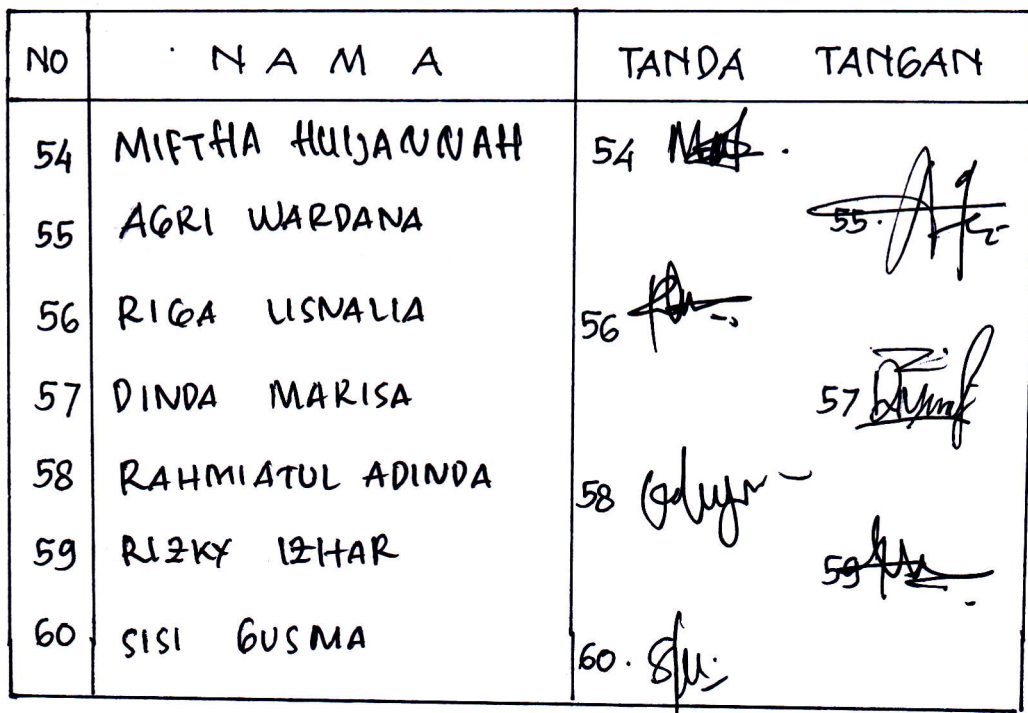 NO NAMA TANDA TANGAN
54 MIFTHA HUIJANNAH 54
55 AGRI WARDANA 55.
56 RIGA LISNALIA 56
57 DINDA MARISA 57
58 RAHMIATUL ADINDA 58
59 RIZKY IZHAR 59
60 SISI GUSMA 60.